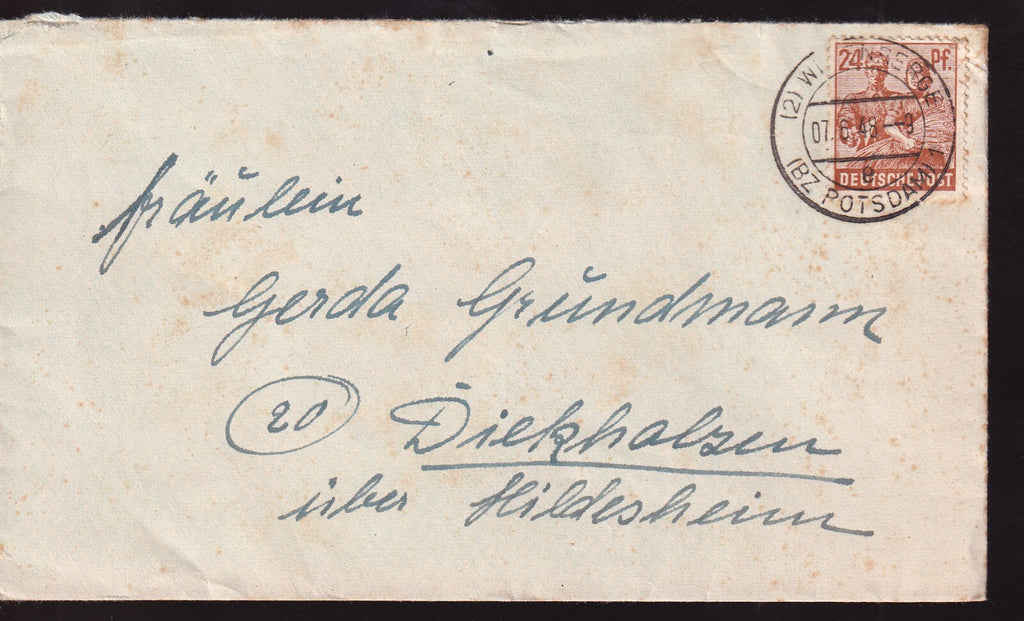 24 Pf.
DEUTSCHE POST
(2) WITTENBERGE
07.6.48--9
e
(BZ POTSDAM) 1
Fräulein
Gerda Grundmann
20 Diekholzen
über Hildesheim